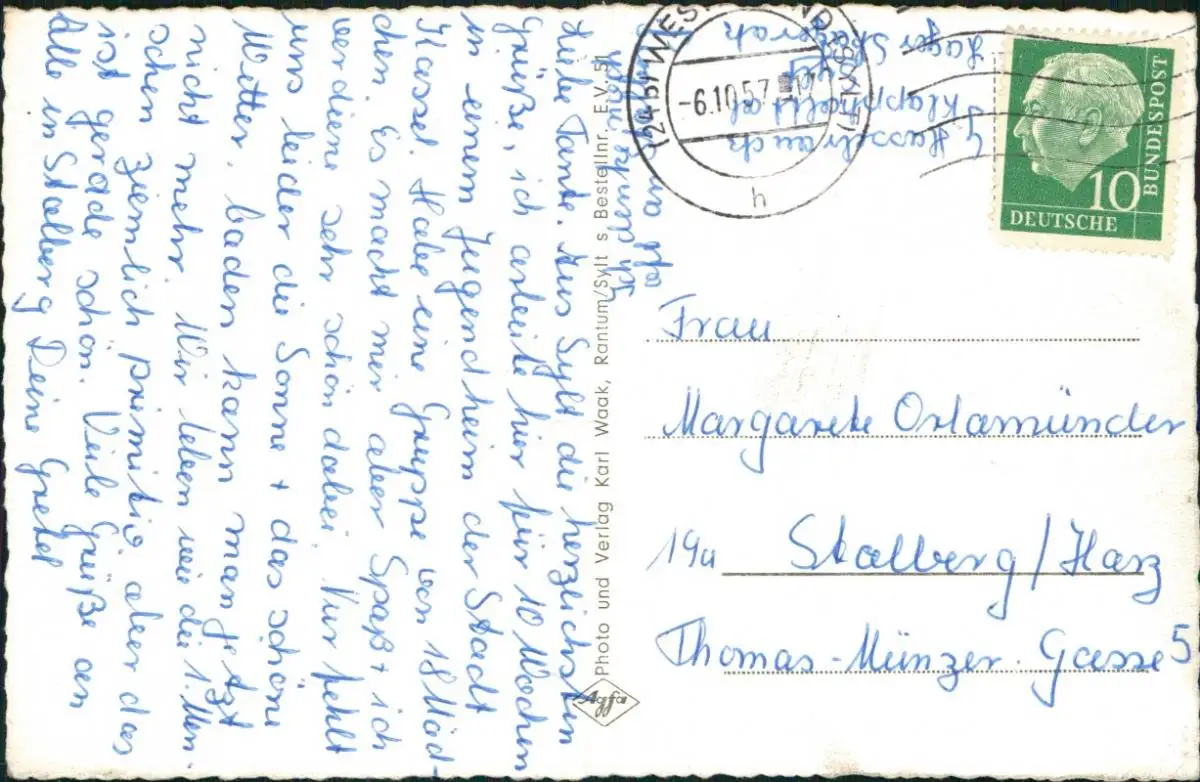 Liebe Tante. Aus Sylt die herzlichsten
Grüße, ich arbeite hier für 10 Wochen
in einem Jugendheim der Stadt
Kassel. Habe eine Gruppe von 18 Mäd-
chen. Es macht mir aber Spaß + ich
verdiene sehr schön dabei. Nur fehlt
uns leider die Sonne + das schöne
Wetter, baden kann man jetzt
nicht mehr. Wir leben wie die 1. Men-
schen ziemlich primitiv, aber das
ist gerade schön. Viele Grüße an
Alle in Stalberg Deine Gretel
Photo und Verlag Karl Waak, Rantum/Sylt s Bestellnr. E.V. 51
Agfa
(24b) WESTERLAND (SYLT)
-6.10.57
h
10
DEUTSCHE
BUNDESPOST
Frau
Margarete Orlamünder
19a Stalberg/Harz
Thomas-Münzer-Gasse 5